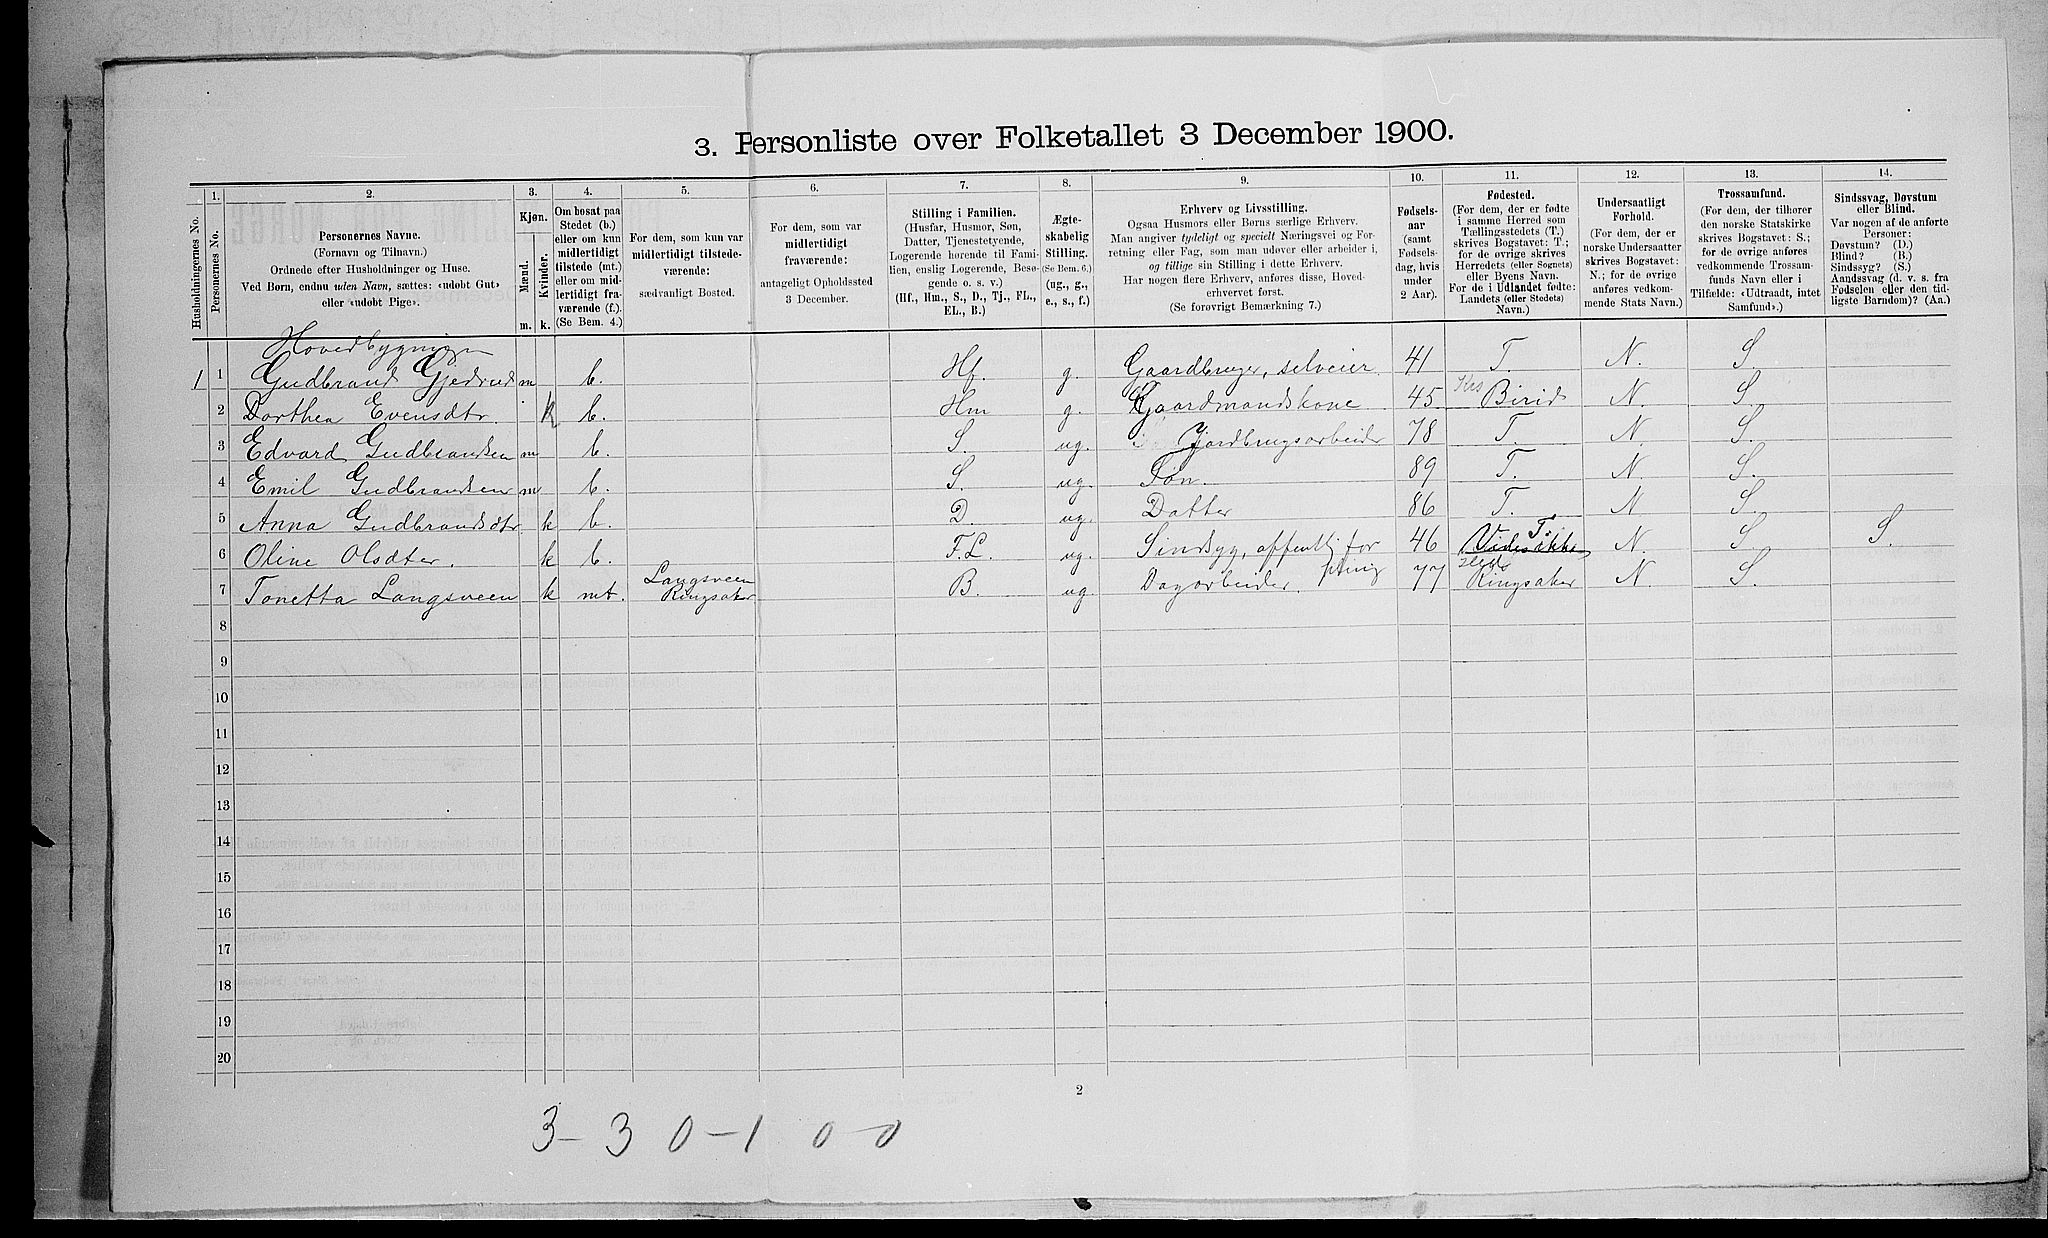 3. Personliste over Folketallet 3 December 1900.
Husholdningernes No.
1.
Personernes No.
2.
Personernes Navne.
(Fornavn og Tilnavn.)
Ordnede efter Husholdninger og Huse.
Ved Børn, endnu uden Navn, sættes: «udøbt Gut»
eller «udøbt Pige».
3.
Kjøn.
Mænd.
Kvinder.
m. k.
4.
Om bosat paa
Stedet (b.)
eller om kun
midlertidigt
tilstede (mt.)
eller om mid-
lertidigt fra-
værende (f.).
(Se Bem. 4.)
5.
For dem, som kun var
midlertidigt tilstede-
værende:
sædvanligt Bosted.
6.
For dem, som var
midlertidigt
fraværende:
antageligt Opholdssted
3 December.
7.
Stilling i Familien.
(Husfar, Husmor, Søn,
Datter, Tjenestetyende,
Logerende hørende til Fami-
lien, enslig Logerende, Besø-
gende o. s. v.)
(Hf., Hm., S., D., Tj., FL.,
EL., B.)
8.
Ægte-
skabelig
Stilling.
(Se Bem. 6.)
(ug., g.,
e., s., f.)
9.
Erhverv og Livsstilling.
Ogsaa Husmors eller Børns særlige Erhverv.
Man angiver tydeligt og specielt Næringsvei og For-
retning eller Fag, som man udøver eller arbeider i,
og tillige sin Stilling i dette Erhverv.
Har nogen flere Erhverv, anføres disse, Hoved-
erhvervet først.
(Se forøvrigt Bemærkning 7.)
10.
Fødsels-
aar
(samt
Fødsels-
dag, hvis
under
2 Aar).
11.
Fødested.
(For dem, der er fødte
i samme Herred som
Tællingsstedets (T.)
skrives Bogstavet: T.;
for de øvrige skrives
Herredets (eller Sognets)
eller Byens Navn.
For de i Udlandet fødte:
Landets (eller Stedets)
Navn.)
12.
Undersaatligt
Forhold.
(For dem, der er
norske Undersaatter
skrives Bogstavet:
N.; for de øvrige
anføres vedkom-
mende Stats Navn.)
13.
Trossamfund.
(For dem, der tilhører
den norske Statskirke
skrives Bogstavet: S.;
for de øvrige anføres
vedkommende Trossam-
funds Navn eller i
Tilfælde: «Udtraadt, intet
Samfund».)
14.
Sindssvag, Døvstum
eller Blind.
Var nogen af de anførte
Personer:
Døvstum? (D.)
Blind? (B.)
Sindssyg? (S.)
Aandssvag (d. v. s. fra
Fødselen eller den tid-
ligste Barndom)? (Aa.)
Hovedbygningen
1 1 Gudbrand Gjedrud m b. Hf. g. Gaardbruger, selveier 41 T. N. S.
2 Dorthea Evensdtr. k b. Hm g. Gaardmandskone 45 Birid N. S.
3 Edvard Gudbrandsen m b. S. ug. Jordbrugsarbeider 78 T. N. S.
4 Emil Gudbrandsen m b. S. ug. Søn. 89 T. N. S.
5 Anna Gudbrandsdtr k b. D. ug. Datter 86 T. N. S.
6 Oline Olsdter. k b. F.L. ug. Sindsyg, offentli for 46 T. N. S. S.
7 Tonetta Langsveen k mt. Langsveen Ringsaker B. ug. Dagarbeider. 77 Ringsaker N. S.
8
9
10
11
12
13
14
15
16
17
18
19
20
2
3 - 3 0 - 1 0 - 0